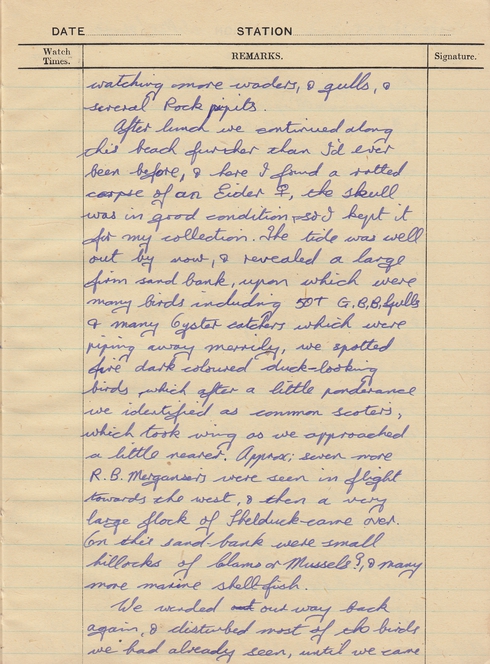 DATE STATION
Watch Times. REMARKS. Signature.
watching more waders, & gulls, &
several Rock pipits.
After lunch we continued along
this beach further than I'd ever
been before, & here I found a rotted
corpse of an Eider ♀, the skull
was in good condition, so I kept it
for my collection. The tide was well
out by now, & revealed a large
firm sand bank, upon which were
many birds including 50+ G.B.B. Gulls
& many Oyster catchers which were
piping away merrily, we spotted
five dark coloured duck-looking
birds, which after a little ponderance
we identified as common scoters,
which took wing as we approached
a little nearer. Approx; seven more
R.B. Mergansers were seen in flight
towards the west, & then a very
large flock of Shelduck came over.
On this sand-bank were small
hillocks of Clams or Mussels?, & many
more marine shellfish.
We wended our way back
again, & disturbed most of the birds
we had already seen, until we came